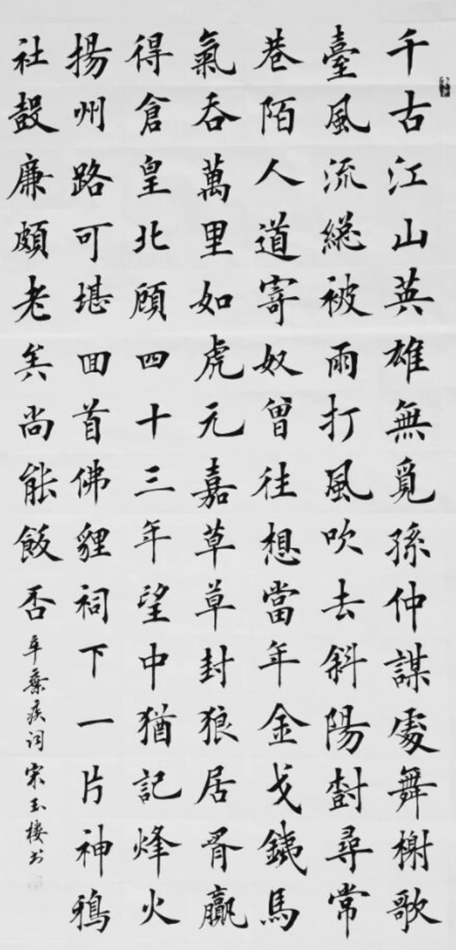 千古江山英雄無覓孫仲謀處舞榭歌
臺風流緫被雨打風吹去斜陽樹尋常
巷陌人道寄奴曾住想當年金戈鐵馬
氣吞萬里如虎元嘉草草封狼居胥贏
得倉皇北顧四十三年望中猶記烽火
揚州路可堪囬首佛貍祠下一片神鴉
社鼓廉頗老矣尚能飯否
辛棄疾詞宋玉樓书